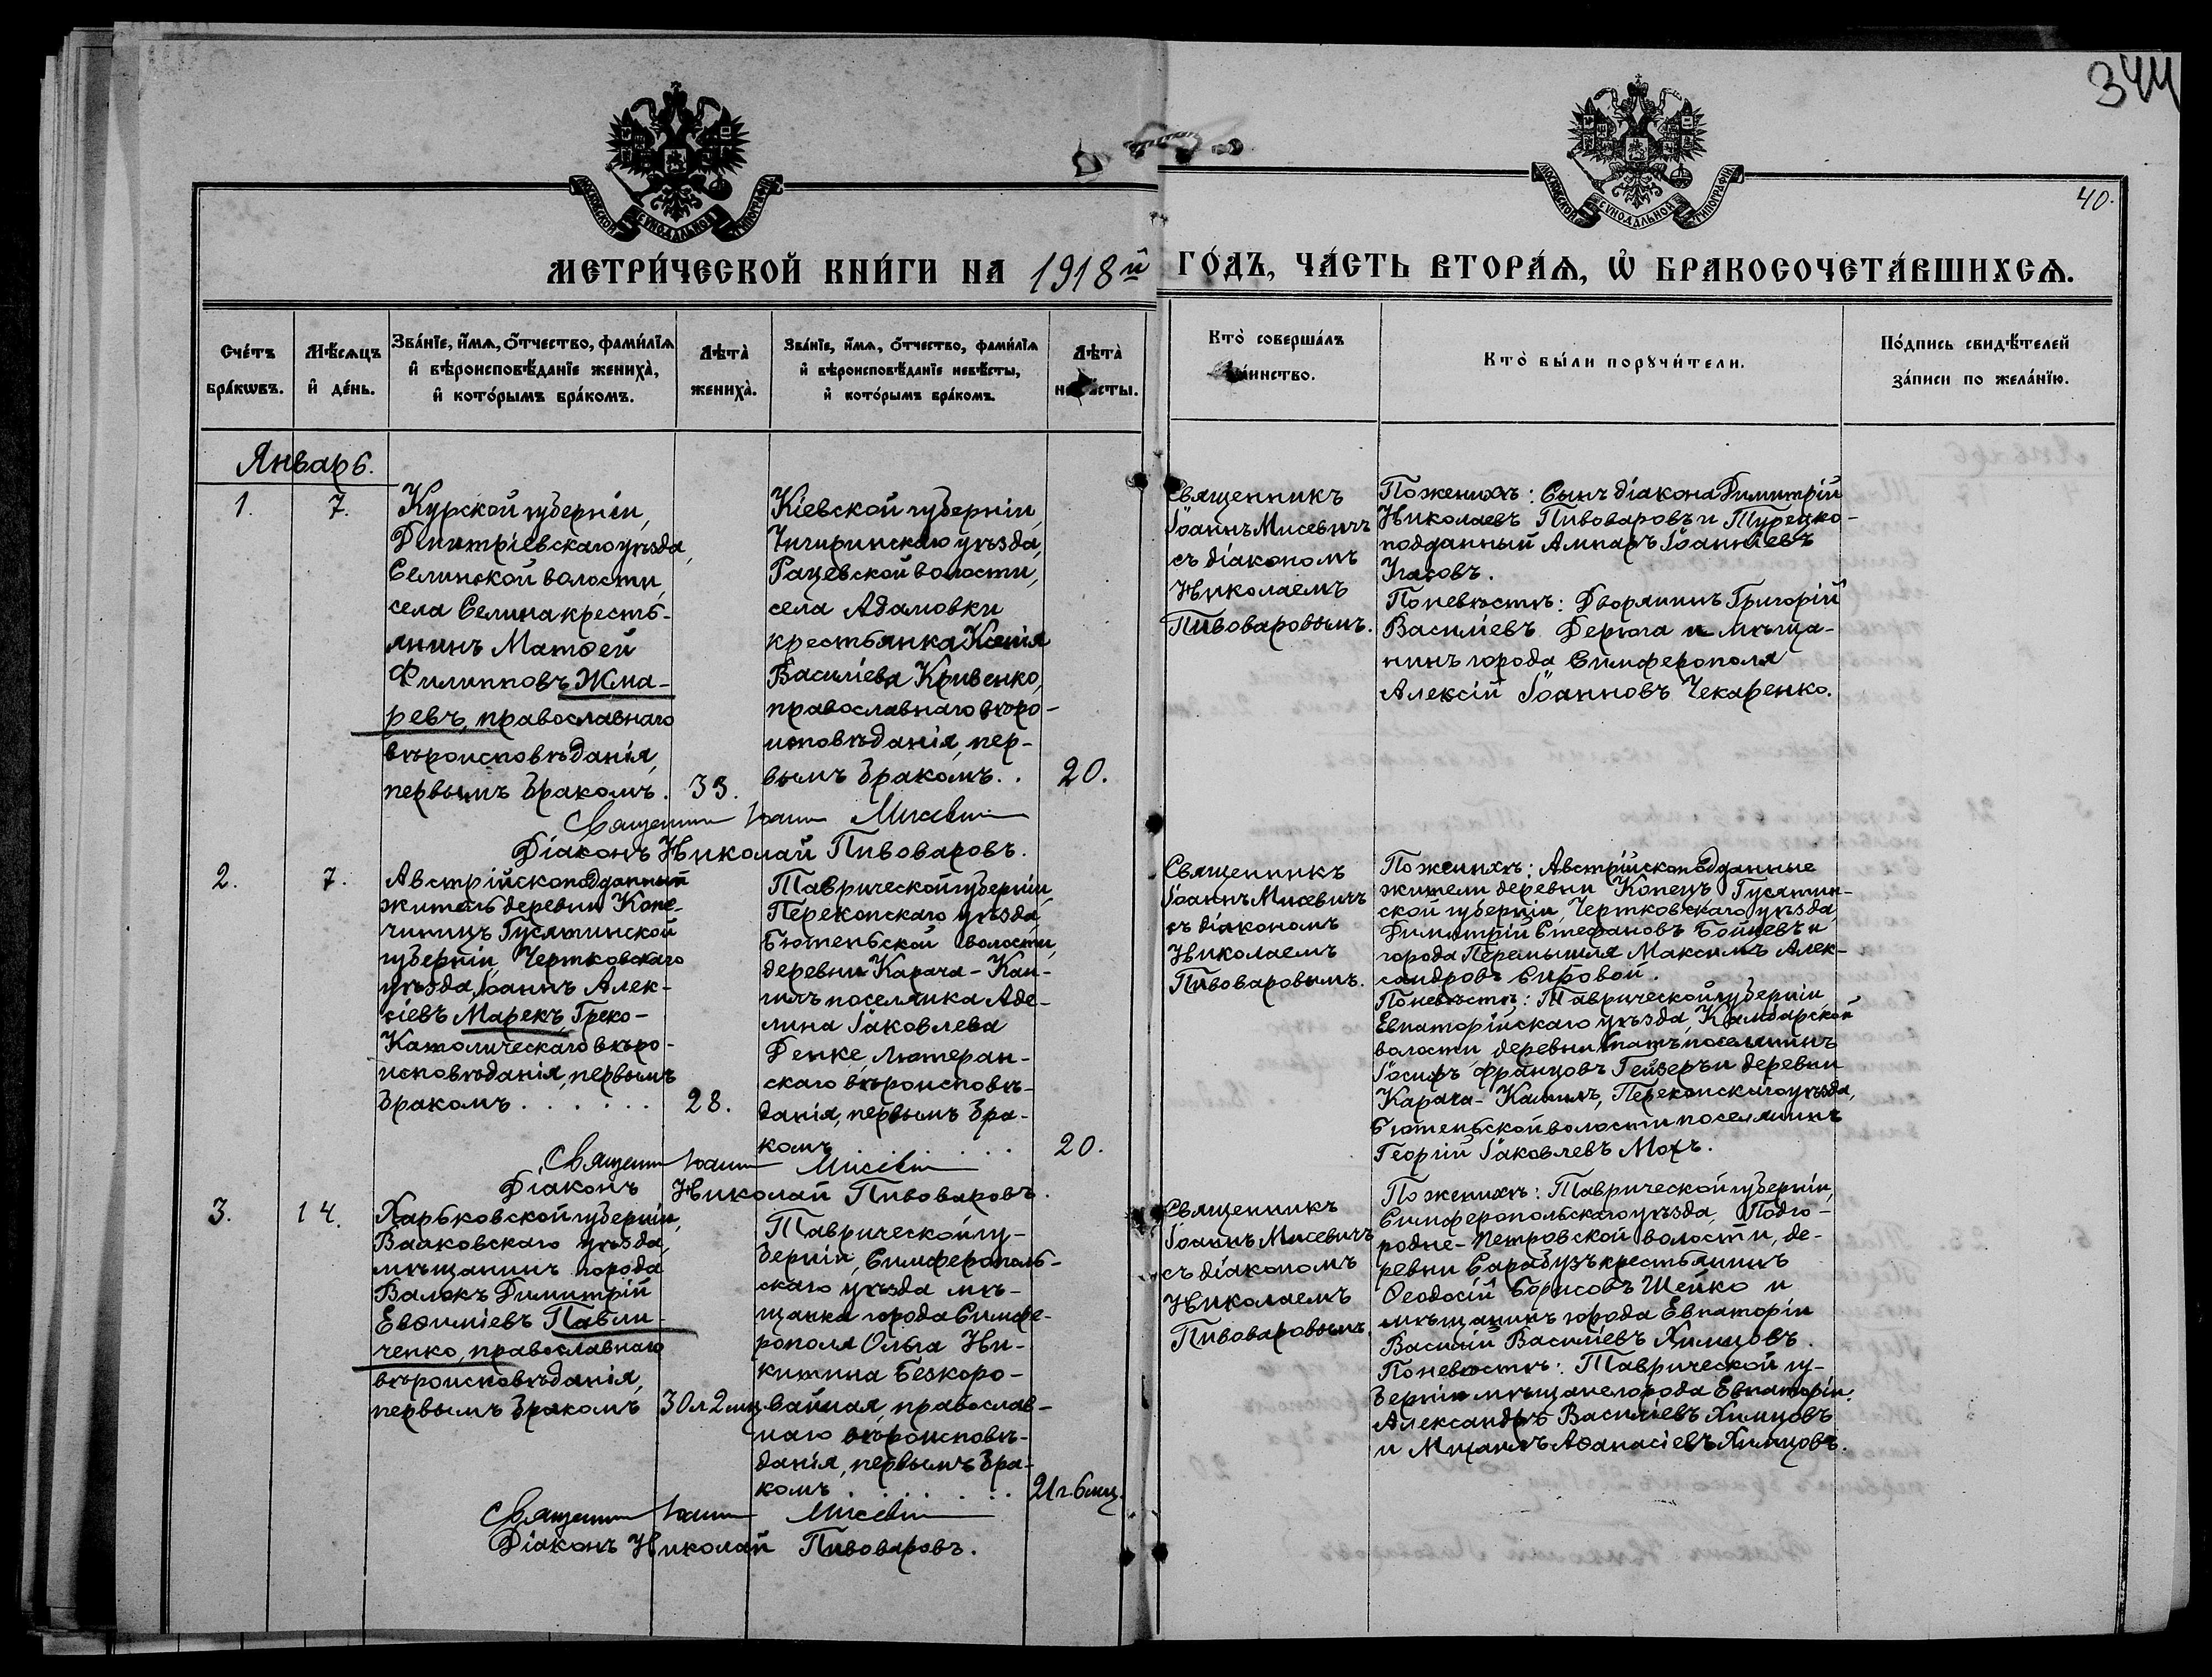 344
40.
МОСКОВСКОЙ СУНОДАЛЬНОЙ ТИПОГРАФІИ
МОСКОВСКОЙ СУНОДАЛЬНОЙ ТИПОГРАФІИ
МЕТРИ́ЧЕСКОЙ КНИ́ГИ НА 1918й ГО́ДЪ, ЧА́СТЬ ВТОРА́Ѧ, Ѡ҆ БРАКОСОЧЕТА́ВШИХСѦ.
Сче́тъ
бра́кωвъ.
Мѣ́сѧцъ
и҆ де́нь.
Зва́нїе, и҆́мѧ, ѻ҆́тчество, фами́лїѧ
и҆ вѣроисповѣ́данїе жениха̀,
и҆ кото́рымъ бра́комъ.
Лѣта̀
жениха̀.
Зва́нїе, и҆́мѧ, ѻ҆́тчество, фами́лїѧ
и҆ вѣроисповѣ́данїе невѣ́сты,
и҆ кото́рымъ бра́комъ.
Лѣта̀
невѣ́сты.
Кто̀ соверша́лъ
та́инство.
Кто̀ бы́ли порꙋчи́тели.
По́дпись свидѣ́телей
за́писи по жела́нїю.
Январь.
1.
7.
Курской губерніи,
Димитріевскаго уѣзда,
Селинской волости,
села Селина кресть-
янинъ Матѳей
Филипповъ Жма-
ревъ, православнаго
вѣроисповѣданія,
первымъ бракомъ.
33.
Кіевской губерніи,
Чигиринскаго уѣзда,
Рацевской волости,
села Адамовки
крестьянка Ксенія
Василіева Кривенко,
православнаго вѣро-
исповѣданія, пер-
вымъ бракомъ. .
20.
Священникъ
Іоаннъ Мисевичъ
съ діакономъ
Николаемъ
Пивоваровымъ.
По женихѣ: Сынъ діакона Димитрій
Николаевъ Пивоваровъ и Турецко-
подданный Ампаръ Іоанніевъ
По невѣстѣ: Дворянинъ Григорій
Василіевъ Дерюга и мѣща-
нинъ города Симферополя
Алексій Іоанновъ Чекаренко.
Священникъ Іоаннъ Мисевичъ
Діаконъ Николай Пивоваровъ.
2.
7.
Австрійскоподданный
житель деревни Копе-
чиницъ Гусятинской
губерніи, Чертковскаго
уѣзда, Іоаннъ Алек-
сіевъ Марекъ, Греко-
Католическаго вѣро-
исповѣданія, первымъ
бракомъ . . . . . .
28.
Таврической губерніи,
Перекопскаго уѣзда,
Бютеньской волости,
деревни Карача-Кан-
гилъ поселянка Аде-
лина Іаковлева
Генке, лютеран-
скаго вѣроисповѣ-
данія, первымъ бра-
комъ . . . . . .
20.
Священникъ
Іоаннъ Мисевичъ
съ діакономъ
Николаемъ
Пивоваровымъ.
По женихѣ: Австрійскоподданные
жители деревни Копецъ, Гусятин-
ской губерніи, Чертковскаго уѣзда,
Димитрій Стефановъ Бойцевъ и
города Перемышля Максимъ Алек-
сандровъ Сировой.
По невѣстѣ: Таврической губерніи,
Евпаторійскаго уѣзда, Камбарской
волости деревни поселянинъ
Іосифъ Францовъ Гейзеръ и деревни
Карача-Кангилъ, Перекопскаго уѣзда,
Бютеньской волости поселянинъ
Георгій Іаковлевъ Мохъ.
Священникъ Іоаннъ Мисевичъ
Діаконъ Николай Пивоваровъ.
3.
14.
Харьковской губерніи,
Валковскаго уѣзда,
мѣщанинъ города
Валокъ Димитрій
Евѳиміевъ Павли-
ченко, православнаго
вѣроисповѣданія,
первымъ бракомъ
30 л 2 мц
Таврической гу-
берніи, Симферополь-
скаго уѣзда мѣ-
щанка города Симфе-
рополя Ольга Ни-
китина Безкоро-
вайная, православ-
наго вѣроисповѣ-
данія, первымъ бра-
комъ . . . . . .
21 г. 6 мц.
Священникъ
Іоаннъ Мисевичъ
съ діакономъ
Николаемъ
Пивоваровымъ.
По женихѣ: Таврической губерніи,
Симферопольскаго уѣзда, Подго-
родне-Петровской волости, де-
ревни Сарабузъ крестьянинъ
Ѳеодосій Борисовъ Шейко и
мѣщанинъ города Евпаторіи
Василій Василіевъ Химцовъ.
По невѣстѣ: Таврической гу-
берніи мѣщане города Евпаторіи:
Александръ Василіевъ Химцовъ
и Михаилъ Аѳанасіевъ Химцовъ.
Священникъ Іоаннъ Мисевичъ
Діаконъ Николай Пивоваровъ.